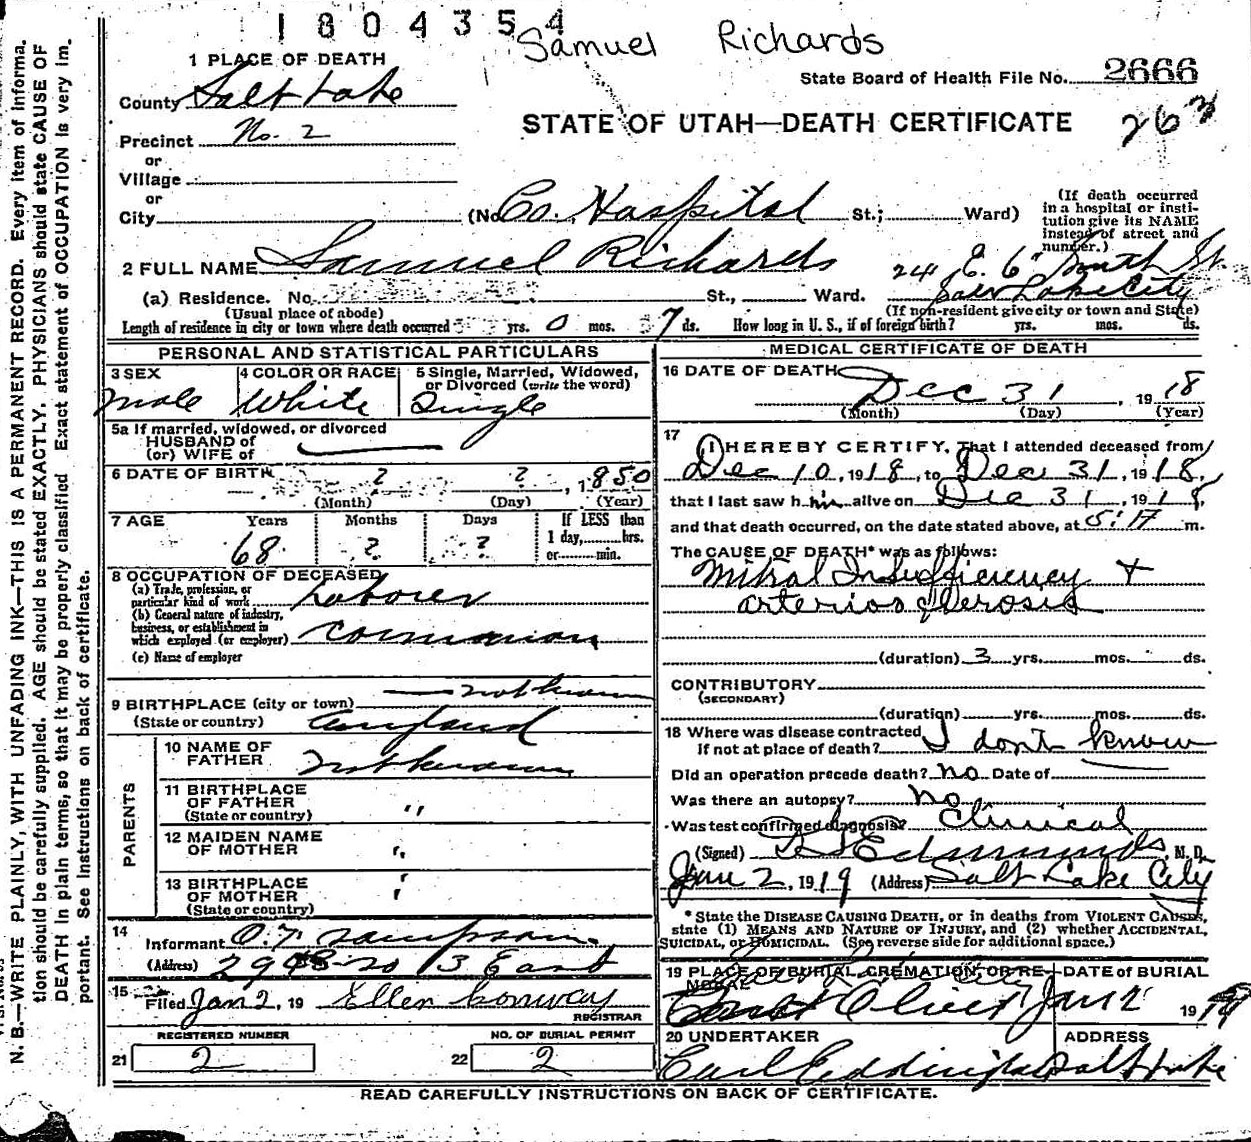 1804354
Samuel Richards
1 PLACE OF DEATH
State Board of Health File No. 2666
County Salt Lake
STATE OF UTAH—DEATH CERTIFICATE
263
Precinct No. 2
or
Village
or
City (No. Co. Hospital St.; Ward)
(If death occurred in a hospital or institution give its NAME instead of street and number.)
2 FULL NAME Samuel Richards
241 E. 6" South St.
(a) Residence. No. St., Ward. Salt Lake City
(Usual place of abode) (If non-resident give city or town and State)
Length of residence in city or town where death occurred yrs. 0 mos. 7 ds. How long in U. S., if of foreign birth? yrs. mos. ds.
PERSONAL AND STATISTICAL PARTICULARS
3 SEX
Male
4 COLOR OR RACE
White
5 Single, Married, Widowed, or Divorced (write the word)
Single
5a If married, widowed, or divorced
HUSBAND of
(or) WIFE of
6 DATE OF BIRTH ? ? , 1850
(Month) (Day) (Year)
7 AGE Years Months Days If LESS than
68 ? ? 1 day, hrs.
or min.
8 OCCUPATION OF DECEASED
(a) Trade, profession, or particular kind of work Laborer
(b) General nature of industry, business, or establishment in which employed (or employer) Common
(c) Name of employer
9 BIRTHPLACE (city or town) not known
(State or country) England
PARENTS
10 NAME OF FATHER not known
11 BIRTHPLACE OF FATHER (State or country) "
12 MAIDEN NAME OF MOTHER "
13 BIRTHPLACE OF MOTHER (State or country) "
14
Informant O. T. Sampson
(Address) 20 13 East
15 Filed Jan 2, 19 Ellen Conway
REGISTRAR
REGISTERED NUMBER NO. OF BURIAL PERMIT
21 2 22 2
MEDICAL CERTIFICATE OF DEATH
16 DATE OF DEATH
Dec 31, 1918
(Month) (Day) (Year)
17
I HEREBY CERTIFY, That I attended deceased from
Dec 10, 1918, to Dec 31, 1918,
that I last saw him alive on Dec 31, 1918,
and that death occurred, on the date stated above, at 5:17 m.
The CAUSE OF DEATH* was as follows:
Mitral Insufficiency +
arteriosclerosis
(duration) 3 yrs. mos. ds.
CONTRIBUTORY
(SECONDARY)
(duration) yrs. mos. ds.
18 Where was disease contracted
if not at place of death? I don't know
Did an operation precede death? No Date of
Was there an autopsy? No
Was test confirmed diagnosis? Clinical
(Signed) Edmunds, M. D.
Jan 2, 1919 (Address) Salt Lake City
* State the DISEASE CAUSING DEATH, or in deaths from VIOLENT CAUSES, state (1) MEANS AND NATURE OF INJURY, and (2) whether ACCIDENTAL, SUICIDAL, or HOMICIDAL. (See reverse side for additional space.)
19 PLACE OF BURIAL, CREMATION, OR REMOVAL DATE OF BURIAL
Jan 2 1919
20 UNDERTAKER ADDRESS
Earl Eddington Salt Lake
READ CAREFULLY INSTRUCTIONS ON BACK OF CERTIFICATE.
N. B.—WRITE PLAINLY, WITH UNFADING INK—THIS IS A PERMANENT RECORD. Every item of information should be carefully supplied. AGE should be stated EXACTLY. PHYSICIANS should state CAUSE OF DEATH in plain terms, so that it may be properly classified. Exact statement of OCCUPATION is very important. See instructions on back of certificate.